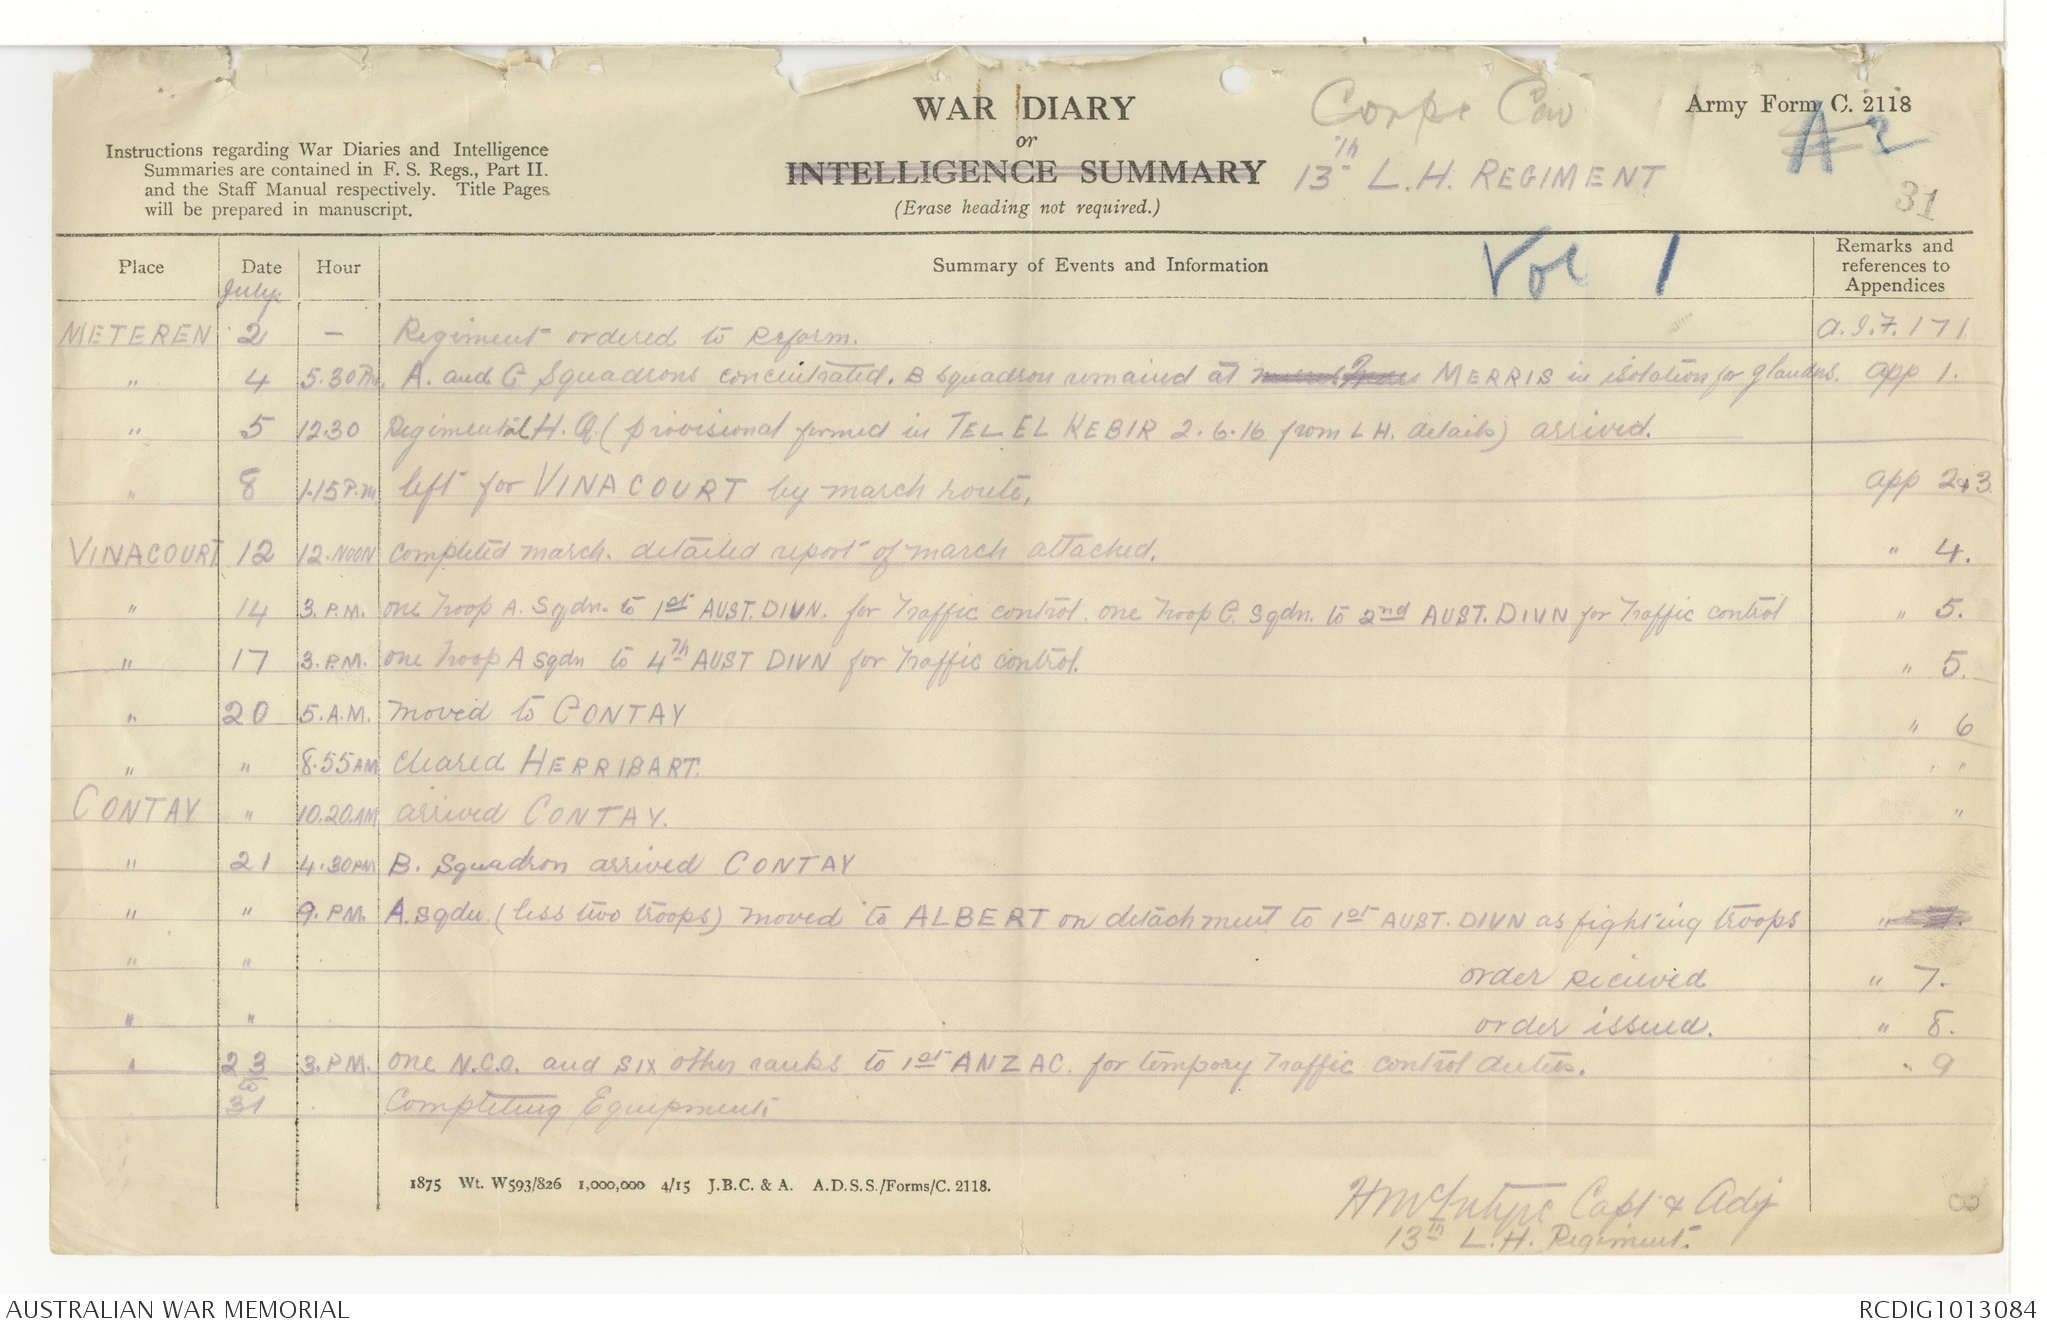 WAR DIARY
or
INTELLIGENCE SUMMARY
(Erase heading not required.)
Instructions regarding War Diaries and Intelligence
Summaries are contained in F. S. Regs., Part II.
and the Staff Manual respectively. Title Pages
will be prepared in manuscript.
Corps Cav
13th L.H. REGIMENT
Army Form C. 2118
A 2
31
Vol 1
Place Date Hour Summary of Events and Information Remarks and references to Appendices
July.
METEREN 2 — Regiment ordered to Reform. A.I.F. 171
" 4 5.30 Pm. A. and C Squadrons concentrated. B squadron remained at MERRIS in isolation for glanders. app 1.
" 5 12.30 Regimental H.Q. (provisional formed in TEL EL KEBIR 2.6.16 from L H. details) arrived.
" 8 1.15 P.m. left for VINACOURT by march route, app 2 & 3
VINACOURT 12 12. NOON completed march. detailed report of march attached. " 4.
" 14 3. P.M. one Troop A. Sqdn. to 1st AUST. DIVN. for Traffic control. one Troop C. Sqdn. to 2nd AUST. DIVN for Traffic control " 5.
" 17 3. P.M. one Troop A Sqdn to 4th AUST DIVN for Traffic control. " 5.
" 20 5. A.M. moved to CONTAY " 6
" " 8.55 AM cleared HERRIBART. " "
CONTAY " 10.20 AM arrived CONTAY. "
" 21 4.30 PM B. Squadron arrived CONTAY
" " 9. P.M. A. sqdn (less two troops) moved to ALBERT on detachment to 1st AUST. DIVN as fighting troops "
" " order recieved " 7.
" " order issued. " 8.
" 23 3. P.M. one N.C.O. and SIX other ranks to 1st ANZAC. for tempory Traffic control duties. " 9
to
31 Completing Equipment.
1875 Wt. W593/826 1,000,000 4/15 J.B.C. & A. A.D.S.S./Forms/C. 2118.
H McIntyre Capt & Adj
13th L.H. Regiment.
8
AUSTRALIAN WAR MEMORIAL
RCDIG1013084